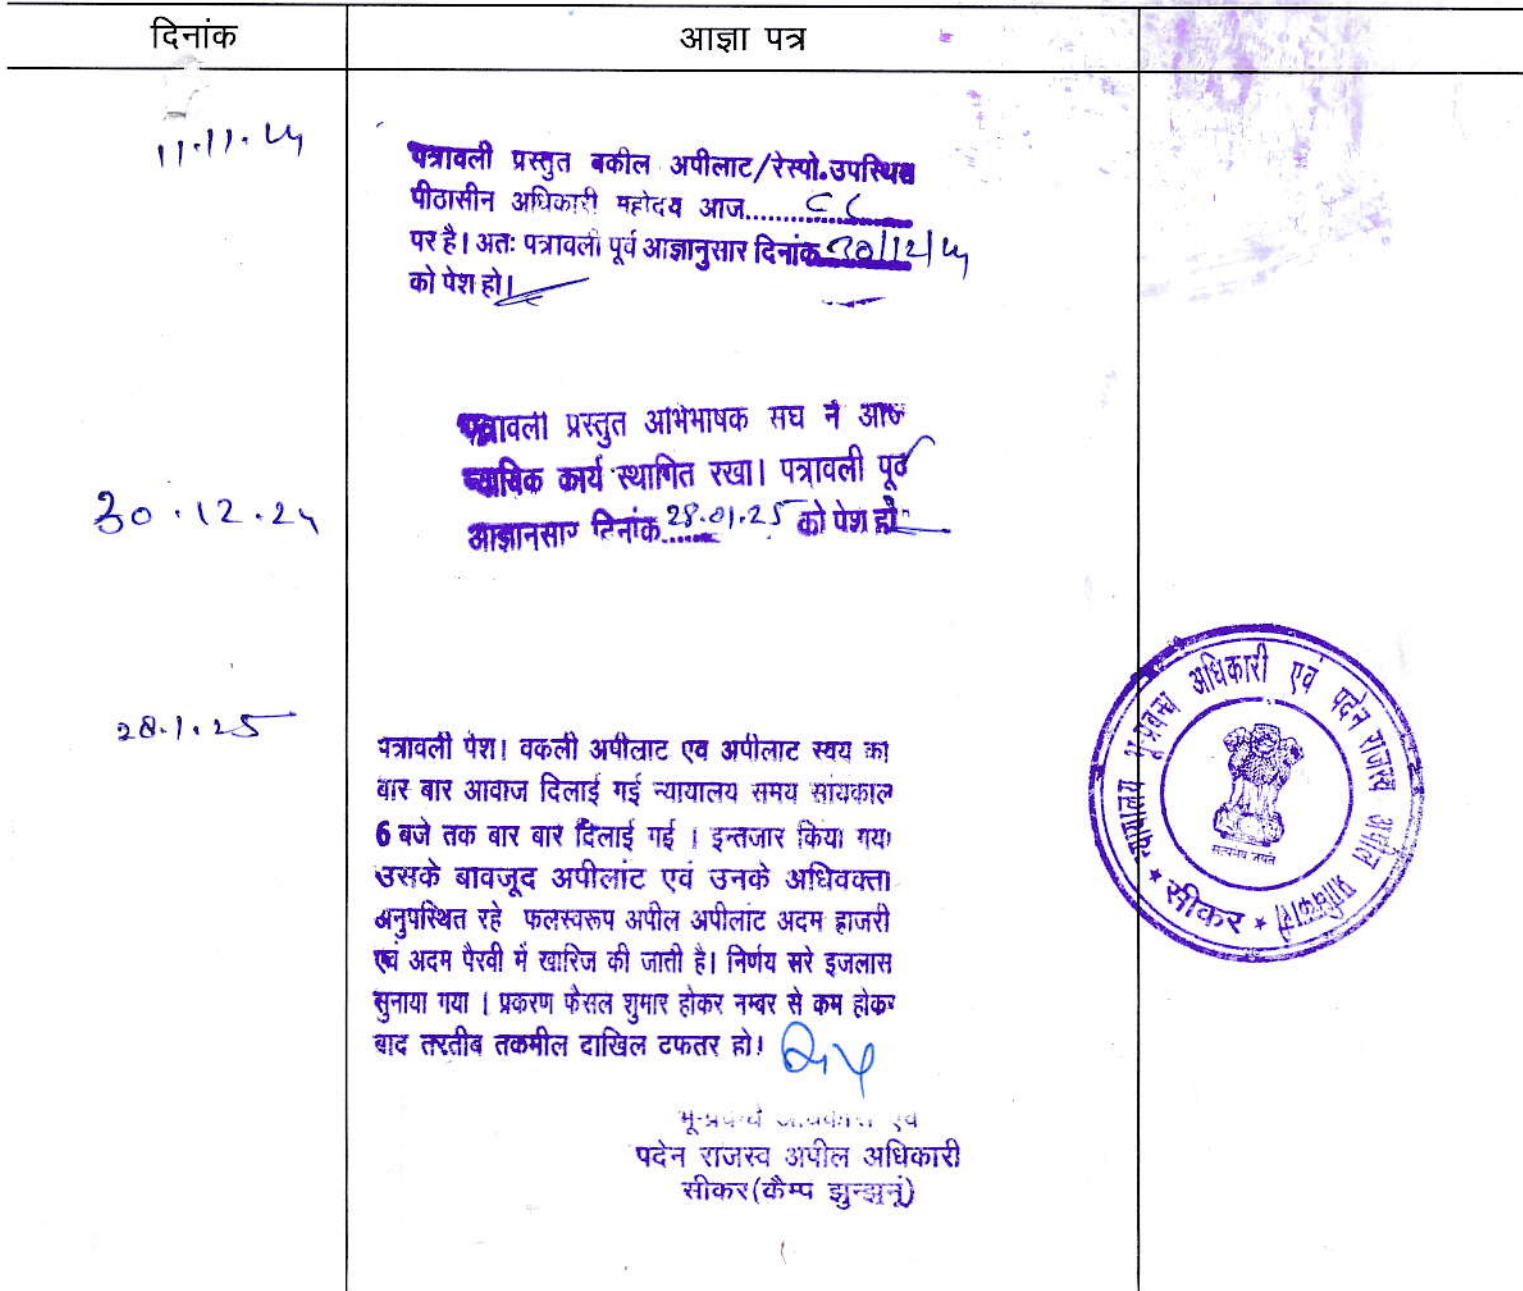 दिनांक
आज्ञा पत्र
11.11.24
पत्रावली प्रस्तुत वकील अपीलाट/रेस्पो.उपस्थित
पीठासीन अधिकारी महोदय आज..........
पर है। अतः पत्रावली पूर्व आज्ञानुसार दिनांक 30/12/24
को पेश हो।
पत्रावली प्रस्तुत अभिभाषक संघ ने आज
न्यायिक कार्य स्थागित रखा। पत्रावली पूर्व
30.12.24
आज्ञानसार दिनांक 28.01.25 को पेश हो
28.1.25
पत्रावली पेश। वकली अपीलाट एव अपीलाट स्वय का
बार बार आवाज दिलाई गई न्यायालय समय सांयकाल
6 बजे तक बार बार दिलाई गई । इन्तजार किया गया
उसके बावजूद अपीलांट एवं उनके अधिवक्ता
अनुपस्थित रहे फलस्वरूप अपील अपीलांट अदम हाजरी
एवं अदम पैरवी में खारिज की जाती है। निर्णय सरे इजलास
सुनाया गया । प्रकरण फैसल शुमार होकर नम्बर से कम होकर
बाद तरतीब तकमील दाखिल दफतर हो!
भू-प्रबन्ध अधिकारी एवं
पदेन राजस्व अपील अधिकारी
सीकर(कैम्प झुन्झनूं)
न्यायालय भू-प्रबन्ध अधिकारी एवं पदेन राजस्व अपील प्राधिकारी
सत्यमेव जयते
* सीकर *